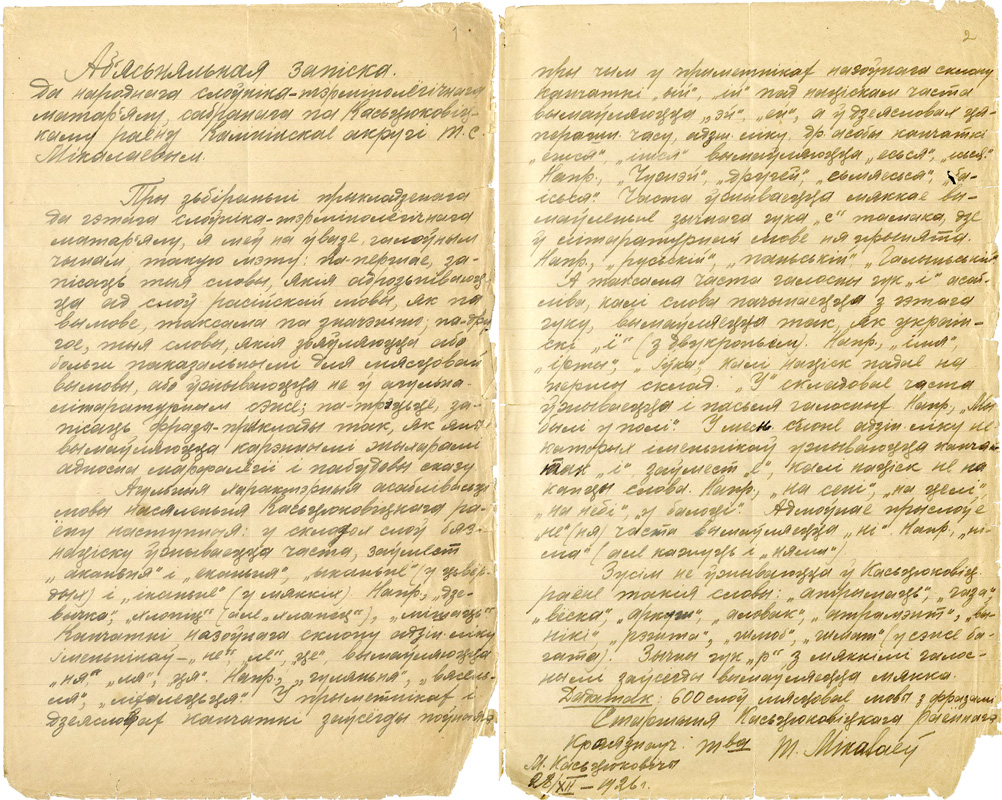 1
Аб'ясьняльная запіска.
да народнага слоўніка-тэрмінолёгічнага
матар'ялу, сабранага па Касьцюковіц-
каму раёну Калінінскае акругі т. С.
Мікалаевым.
Пры зьбіраньні прыкладзенага
да гэтага слоўніка-тэрмінолёгічнага
матар'ялу, я меў на ўвазе, галоўным
чынам, такую мэту: па першае, за-
пісаць тыя словы, якія адрозьніваюц-
ца ад слоў расійскай мовы, як па
вымове, таксама па значэньню; па-дру-
гое, тыя словы, якія зьяўляюцца або
больш паказальнымі для мясцовай
вымовы, або ўжываюцца не ў агульна-
літаратурным сэнсе; па-трэцьце, за-
пісаць фразы-приклады так, як яны
вымаўляюцца карэннымі жыхарамі
адносна марфалёгіі і пабудовы сказу.
Агульныя характэрныя асаблівасьці
мовы насяленьня Касьцюковіцкага ра-
ёну наступныя: у складох слоў бяз
націску ўжываецца часта, заўмест
„аканьня" і „еканьня", „ыканьне" (у цьвёр-
дых) і „іканьне" (у мяккіх). Напр., „дзе-
вычка", „хлопіц" (але „хлапец"), „місіць"
Канчаткі назоўнага склону адзін. ліку
іменьнікаў – „не", „ле", „це", вымаўляюцца
„ня", „ля", „ця". Напр., „гуляньня", „вясель-
ля", У прыметнікаў і
дзеясловаў канчаткі заўсёды поўныя
2
пры чым у прыметнікаў назоўнага склону
канчаткі „ый", „ій" пад націскам часта
вымаўляюцца „эй", „ей", а ў дзеясловах ця-
перашн. часу, адзін. ліку, др. асобы канчаткі
„ешся", „ішся" вымаўляюцца „есься", „ісься".
Напр., „другей", „сьмяесься", „ба-
ісься". Часта ўжываецца мяккае вы-
маўленьне зычнага гука „с" таксама, дзе
ў літаратурнай мове ня прынята.
Напр., „руській", „паньскій",
А таксама часта галосны гук „і" асаб-
ліва, калі слова пачынаецца з этага
гуку, вымаўляецца так, як украін-
скі „ї" (з двукроп'ем). Напр., „їмя"
калі націск падае на
першы склад. „У" складовае часта
ўжываецца і пасьля галосных. Напр., „Мы
былі у полі". У месн. склоне адзін. ліку не-
каторых іменьнікаў ўжываюцца канчат-
так „і" заўмест „е", калі націск не на
канцы слова. Напр., „на сені", „на целі"
„на небі", „у балоці". Адмоўнае прыслоўе
не (ня) часта вымаўляецца „ні". Напр., „ні-
ма" (але кажуць і „няма")
Зусім не ўжываюцца ў Касьцюковіц.
раёне такія словы: „атрымаць",
„вёска", „аркуш", „аловак", „атрамэнт",
„рэшта", „шлюб", „шмат" (у сэнсе ба-
гата). Зычны гук „р" з мяккімі галос-
нымі заўсёды вымаўляецца мякка.
Дадатак: 600 слоў мясцовай мовы з фразамі.
Старшыня Касьцюковіцкага Раённага
Краязнауч. т-ва Т. Мікалаеў
М. Касьцюковічы
28/XII – 1926 г.